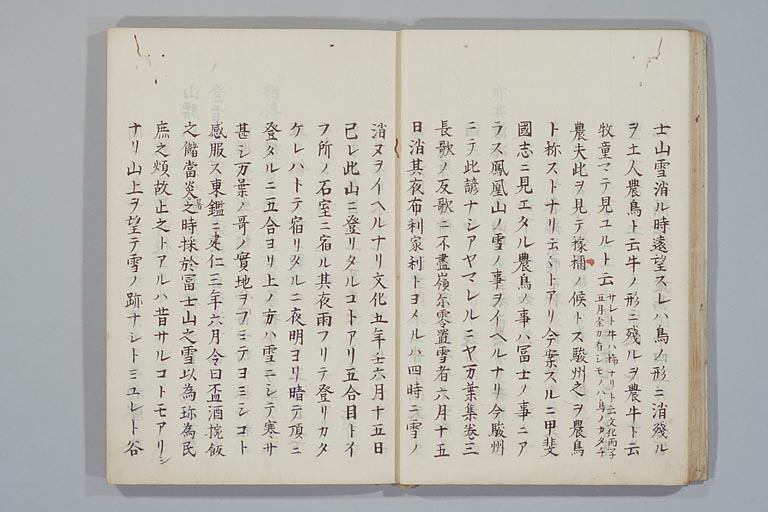 士山雪消ル時遠望スレハ鳥ノ形ニ消殘ル
ヲ土人農鳥ト云牛ノ形ニ殘ルヲ農牛ト云
牧童マテ見ユルト云サレト牛ハ稀ナリト云文化丙子
五月余カ有シモノハ鳥ノカタチ
農夫此ヲ見テ稼穡ノ候トス駿州之ヲ農鳥
ト称ストナリ云々トアリ今案スルニ甲斐
國志ニ見エタル農鳥ノ事ハ冨士ノ事ニア
ラス鳳凰山ノ雪ノ事ヲイヘルナリ今駿州
ニテ此諺ナシアヤマレルニヤ万葉集卷三
長歌ノ反歌ニ不盡嶺尓零置雪者六月十五
日消其夜布利家利トヨメルハ四時ニ雪ノ
消ヌヲイヘルナリ文化五年壬六月十五日
已レ此山ニ登リタルコトアリ五合目トイ
フ所ノ石室ニ宿ル其夜雨フリテ登リカタ
ケレハトテ宿リタルニ夜明ヨリ晴テ頂ニ
登タルニ五合ヨリ上ノ方ハ雪ニシテ寒サ
甚シ万葉ノ哥ノ實地ヲフミテヨミシコト
感服ス東鑑ニ建仁三年六月令曰盃酒椀飯
之儲當炎暑之時採於冨士山之雪以為珎為民
庶之煩故止之トアルハ昔サルコトモアリシ
ナリ山上ヲ望テ雪ノ跡ナシトミユレト谷